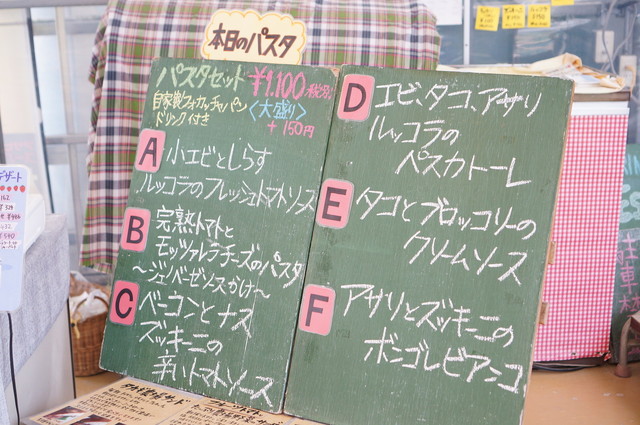 本日のパスタ
パスタセット ¥1,100 (税別)
自家製フォカッチャパン
ドリンク付き
〈大盛り〉
+150円
A 小エビとしらす
ルッコラのフレッシュトマトソース
B 完熟トマトと
モッツァレラチーズのパスタ
〜ジェノベーゼソースがけ〜
C ベーコンとナス
ズッキーニの
辛いトマトソース
D エビ、タコ、アサリ
ルッコラの
ペスカトーレ
E タコとブロッコリーの
クリームソース
F アサリとズッキーニの
ボンゴレビアンコ
デザート
駐車場